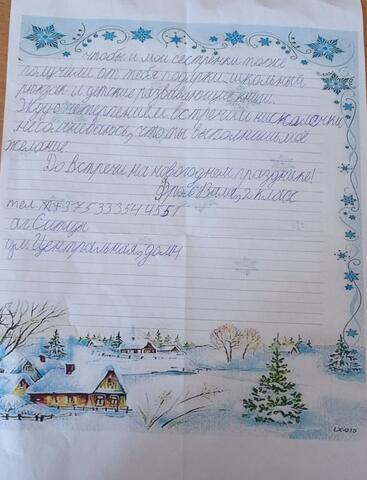 чтобы и мои сестрёнки тоже
получили от тебя подарки: школьный
рюкзак и детские развивающие книги.
Жду с нетерпением встречи и нисколечки
не сомневаюсь, что ты выполнишь моё
желание.
До встречи на новогоднем празднике!
Валя, 2 класс
тел. +375333544551
аг. Ситцы
ул. Центральная, дом 4
LX-015